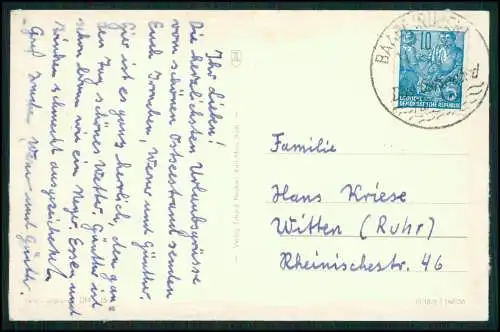 Ihr Lieben!
Die herzlichsten Urlaubsgrüsse
vom schönen Ostseestrand senden
Euch Traudchen, Werner und Günther.
Hier ist es ganz herrlich, den gan-
zen Tag schönes Wetter. Günther ist
schon braun wie ein Neger. Essen und
Trinken schmeckt ausgezeichnet.
Gruß Werner und Günther.
BAABE (RÜGEN)
10
DEUTSCHE
DEMOKRATISCHE REPUBLIK
Familie
Hans Kriese
Witten (Ruhr)
Rheinischestr. 46